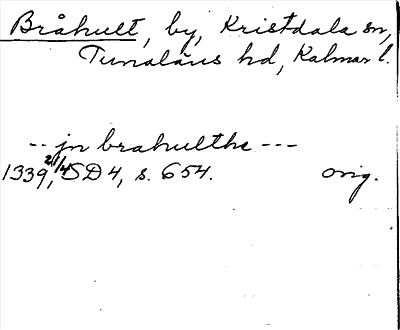 Bråhult, by, Kristdala sn,
Tunaläns hd, Kalmar l.
-- jn brahulthe ---
1339 21/4, SD 4, s. 654. orig.